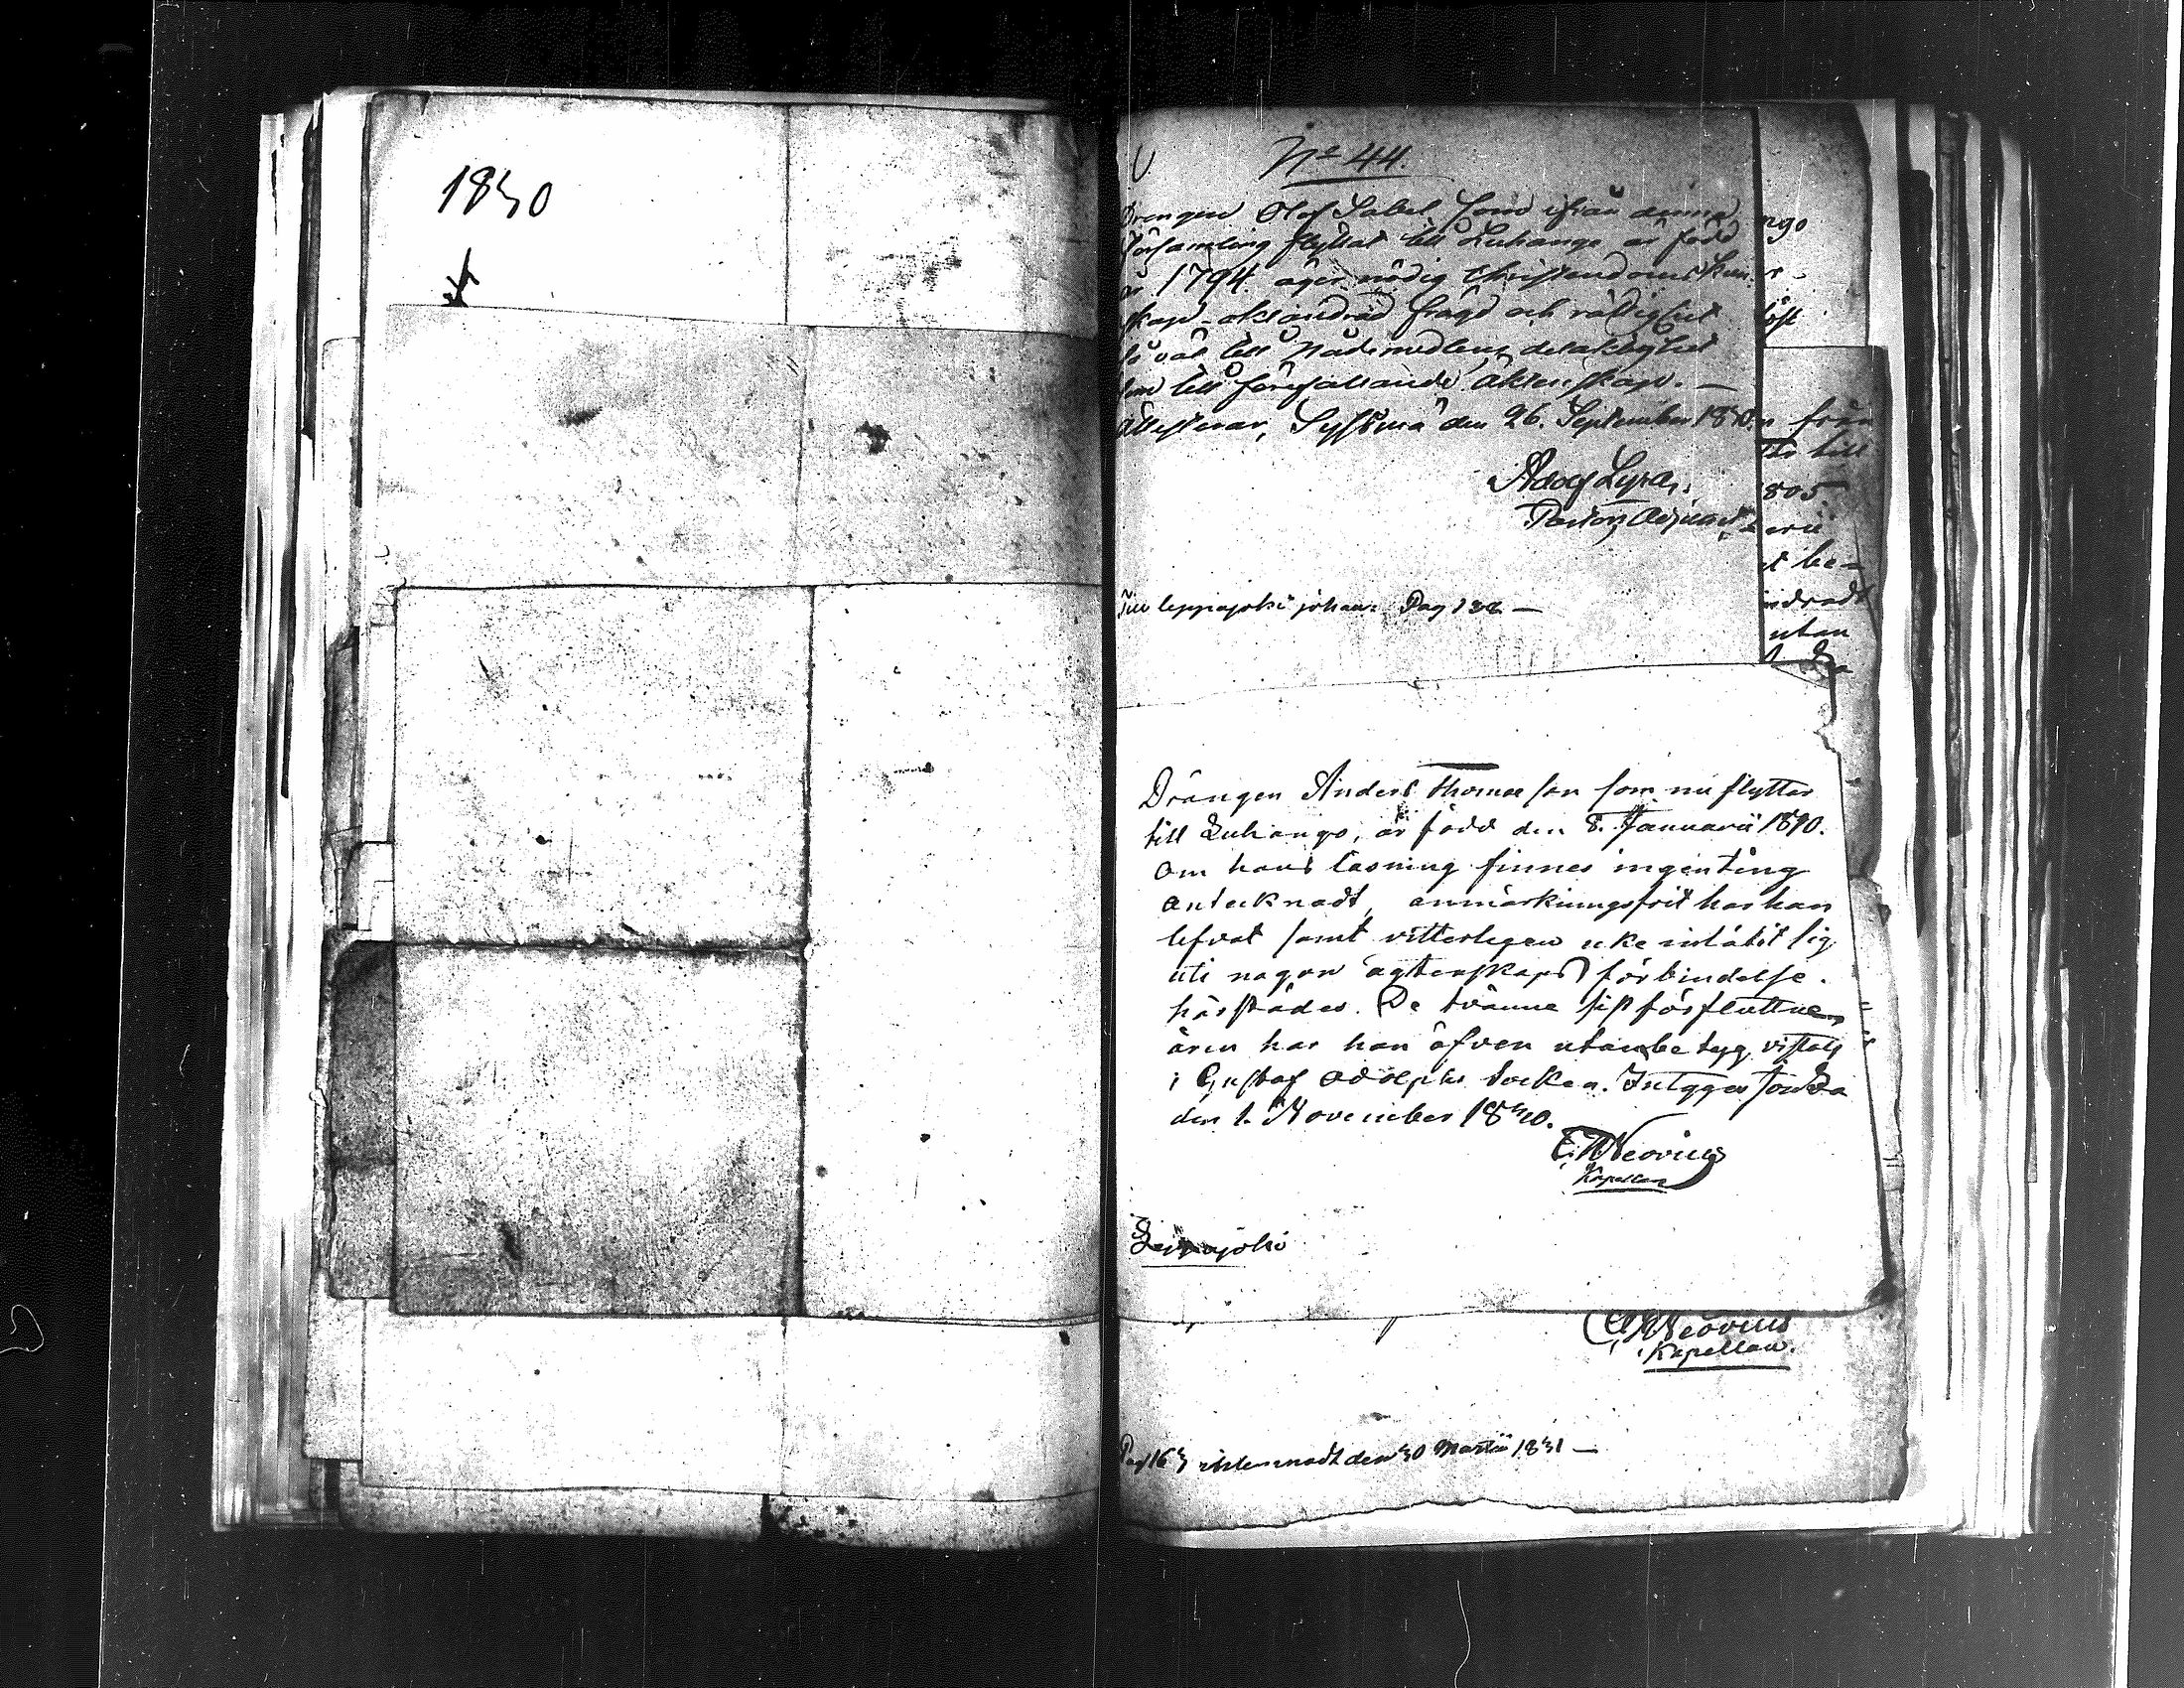 1830
No 44.
Drengen Olof Sabel, som ifrån denna
Församling flyttat till Luhango är född
år 1794. äger nödig Christendoms kun-
skap, oklandrad frägd och rättighet
så väl till Nådemedlens delaktighet
som till föregifvande Äktenskap. —
Attesterar, Sysmä den 26. September 1830.
Adolf Lyra,
Pastors Adjunct.
Till Leppäjoki johan: Pag 132 —
ngo
från
till
1805
utan
Drängen Anders Thomasson som nu flyttar
till Luhango, är född den 8. Januarii 1810.
Om hans läsning finnes ingenting
antecknadt, anmärkningsfrit har han
lefvat samt vitterligen icke inlåtit sig
uti någon ägtenskaps förbindelse
härstädes. De tvänne sist förfluttne
åren har han äfven utan betyg vistats
i Gustaf Adolphs Socken. Intygges Joutsa
den 1. November 1830.
E. W Neovius
Kapellan
Leppäjoki
E W Neovius
Kapellan.
Pag 163 antecknadt den 30 Martii 1831 —